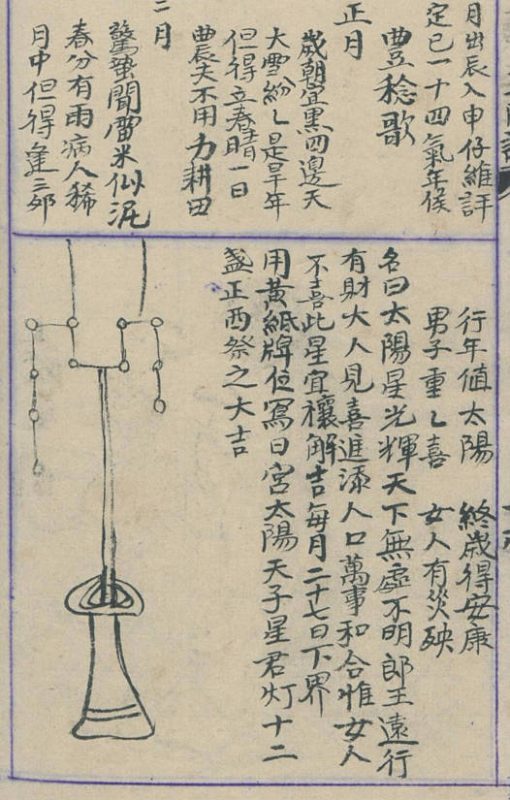 月出辰入申仔維評
定已一十四氣年侯
豊稔歌
正月
歲朝宜黒四邊天
大雪紛〻是旱年
但得立春晴一日
農夫不用力耕田
二月
驚蟄聞雷米似泥
春分有雨病人稀
月中但得逢三夘
行年值太陽　終歲得安康
男子重〻喜　女人有災殃
名曰太陽星光輝天下無處不明郎王遠行
有財大人見喜進添人口萬事和合惟女人
不喜此星宜禳解吉每月二十七日下界
用黄紙牌位寫日宮太陽天子星君灯十二
盞正西祭之大吉